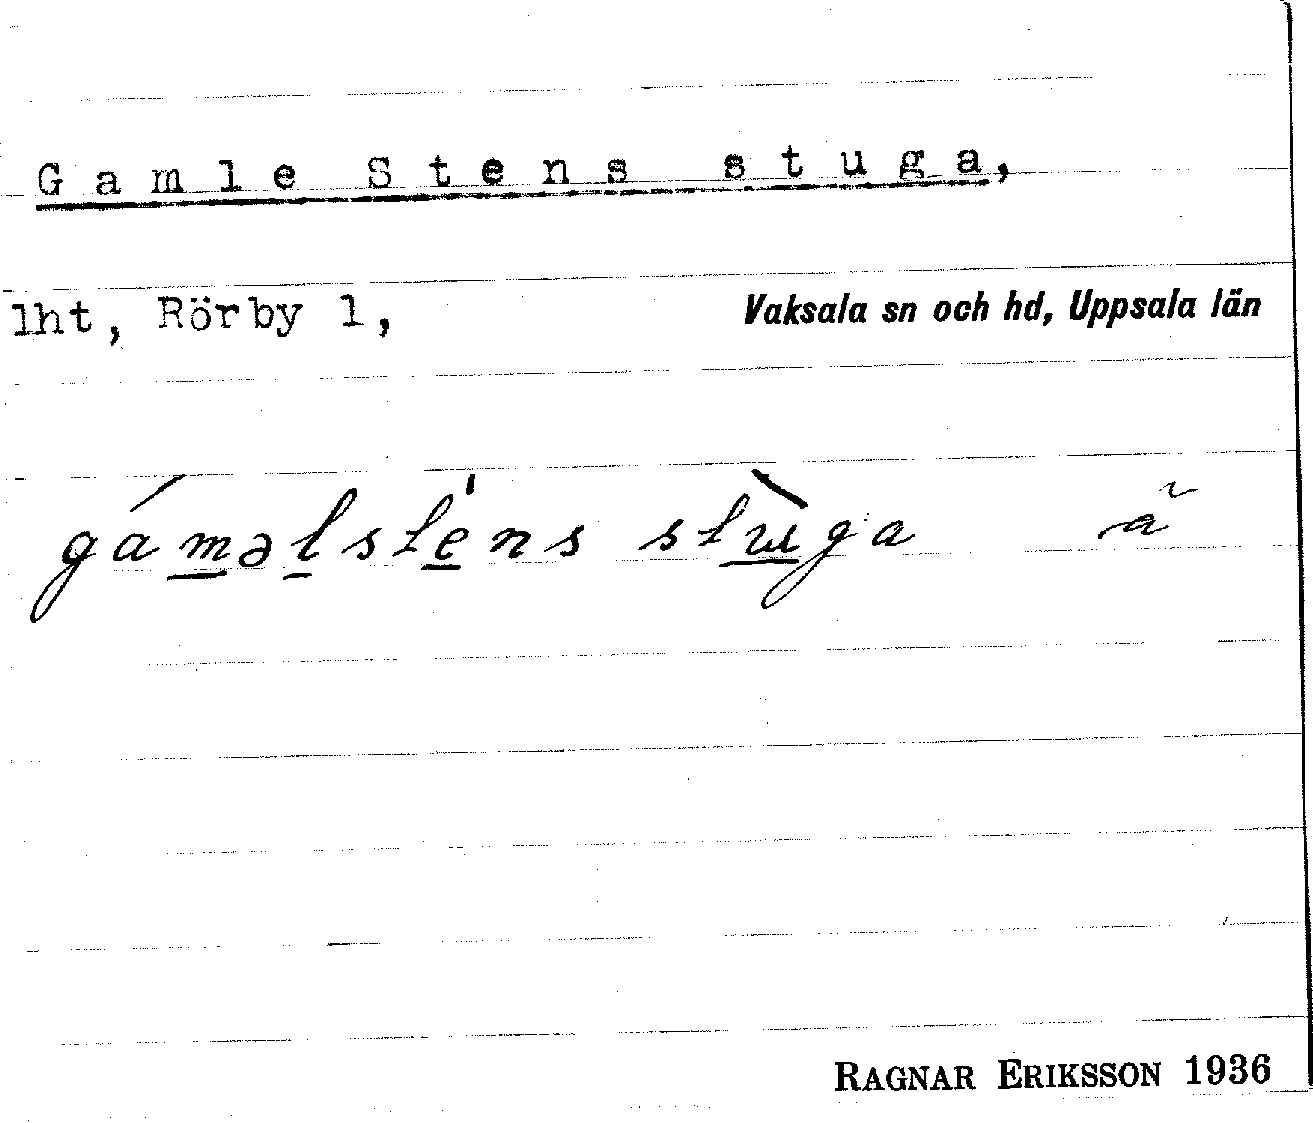 Gamle Stens stuga,
lht, Rörby 1,
Vaksala sn och hd, Uppsala län
gáməlste̍ns stùga ã
RAGNAR ERIKSSON 1936